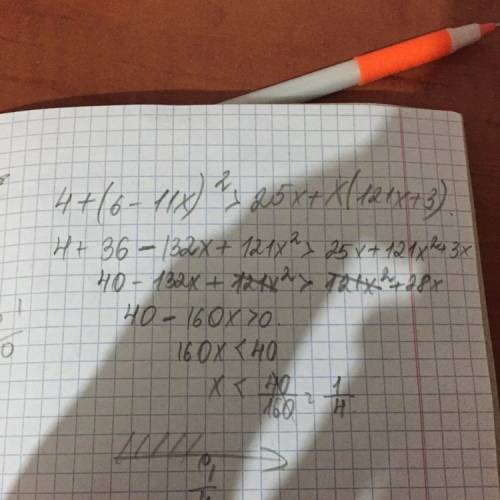 4+(6-11x)²>25x+x(121x+3).
4+36-132x+121x²>25x+121x²+3x
40-132x+121x²>121x²+28x
40-160x>0.
160x<40
x<40/160=1/4